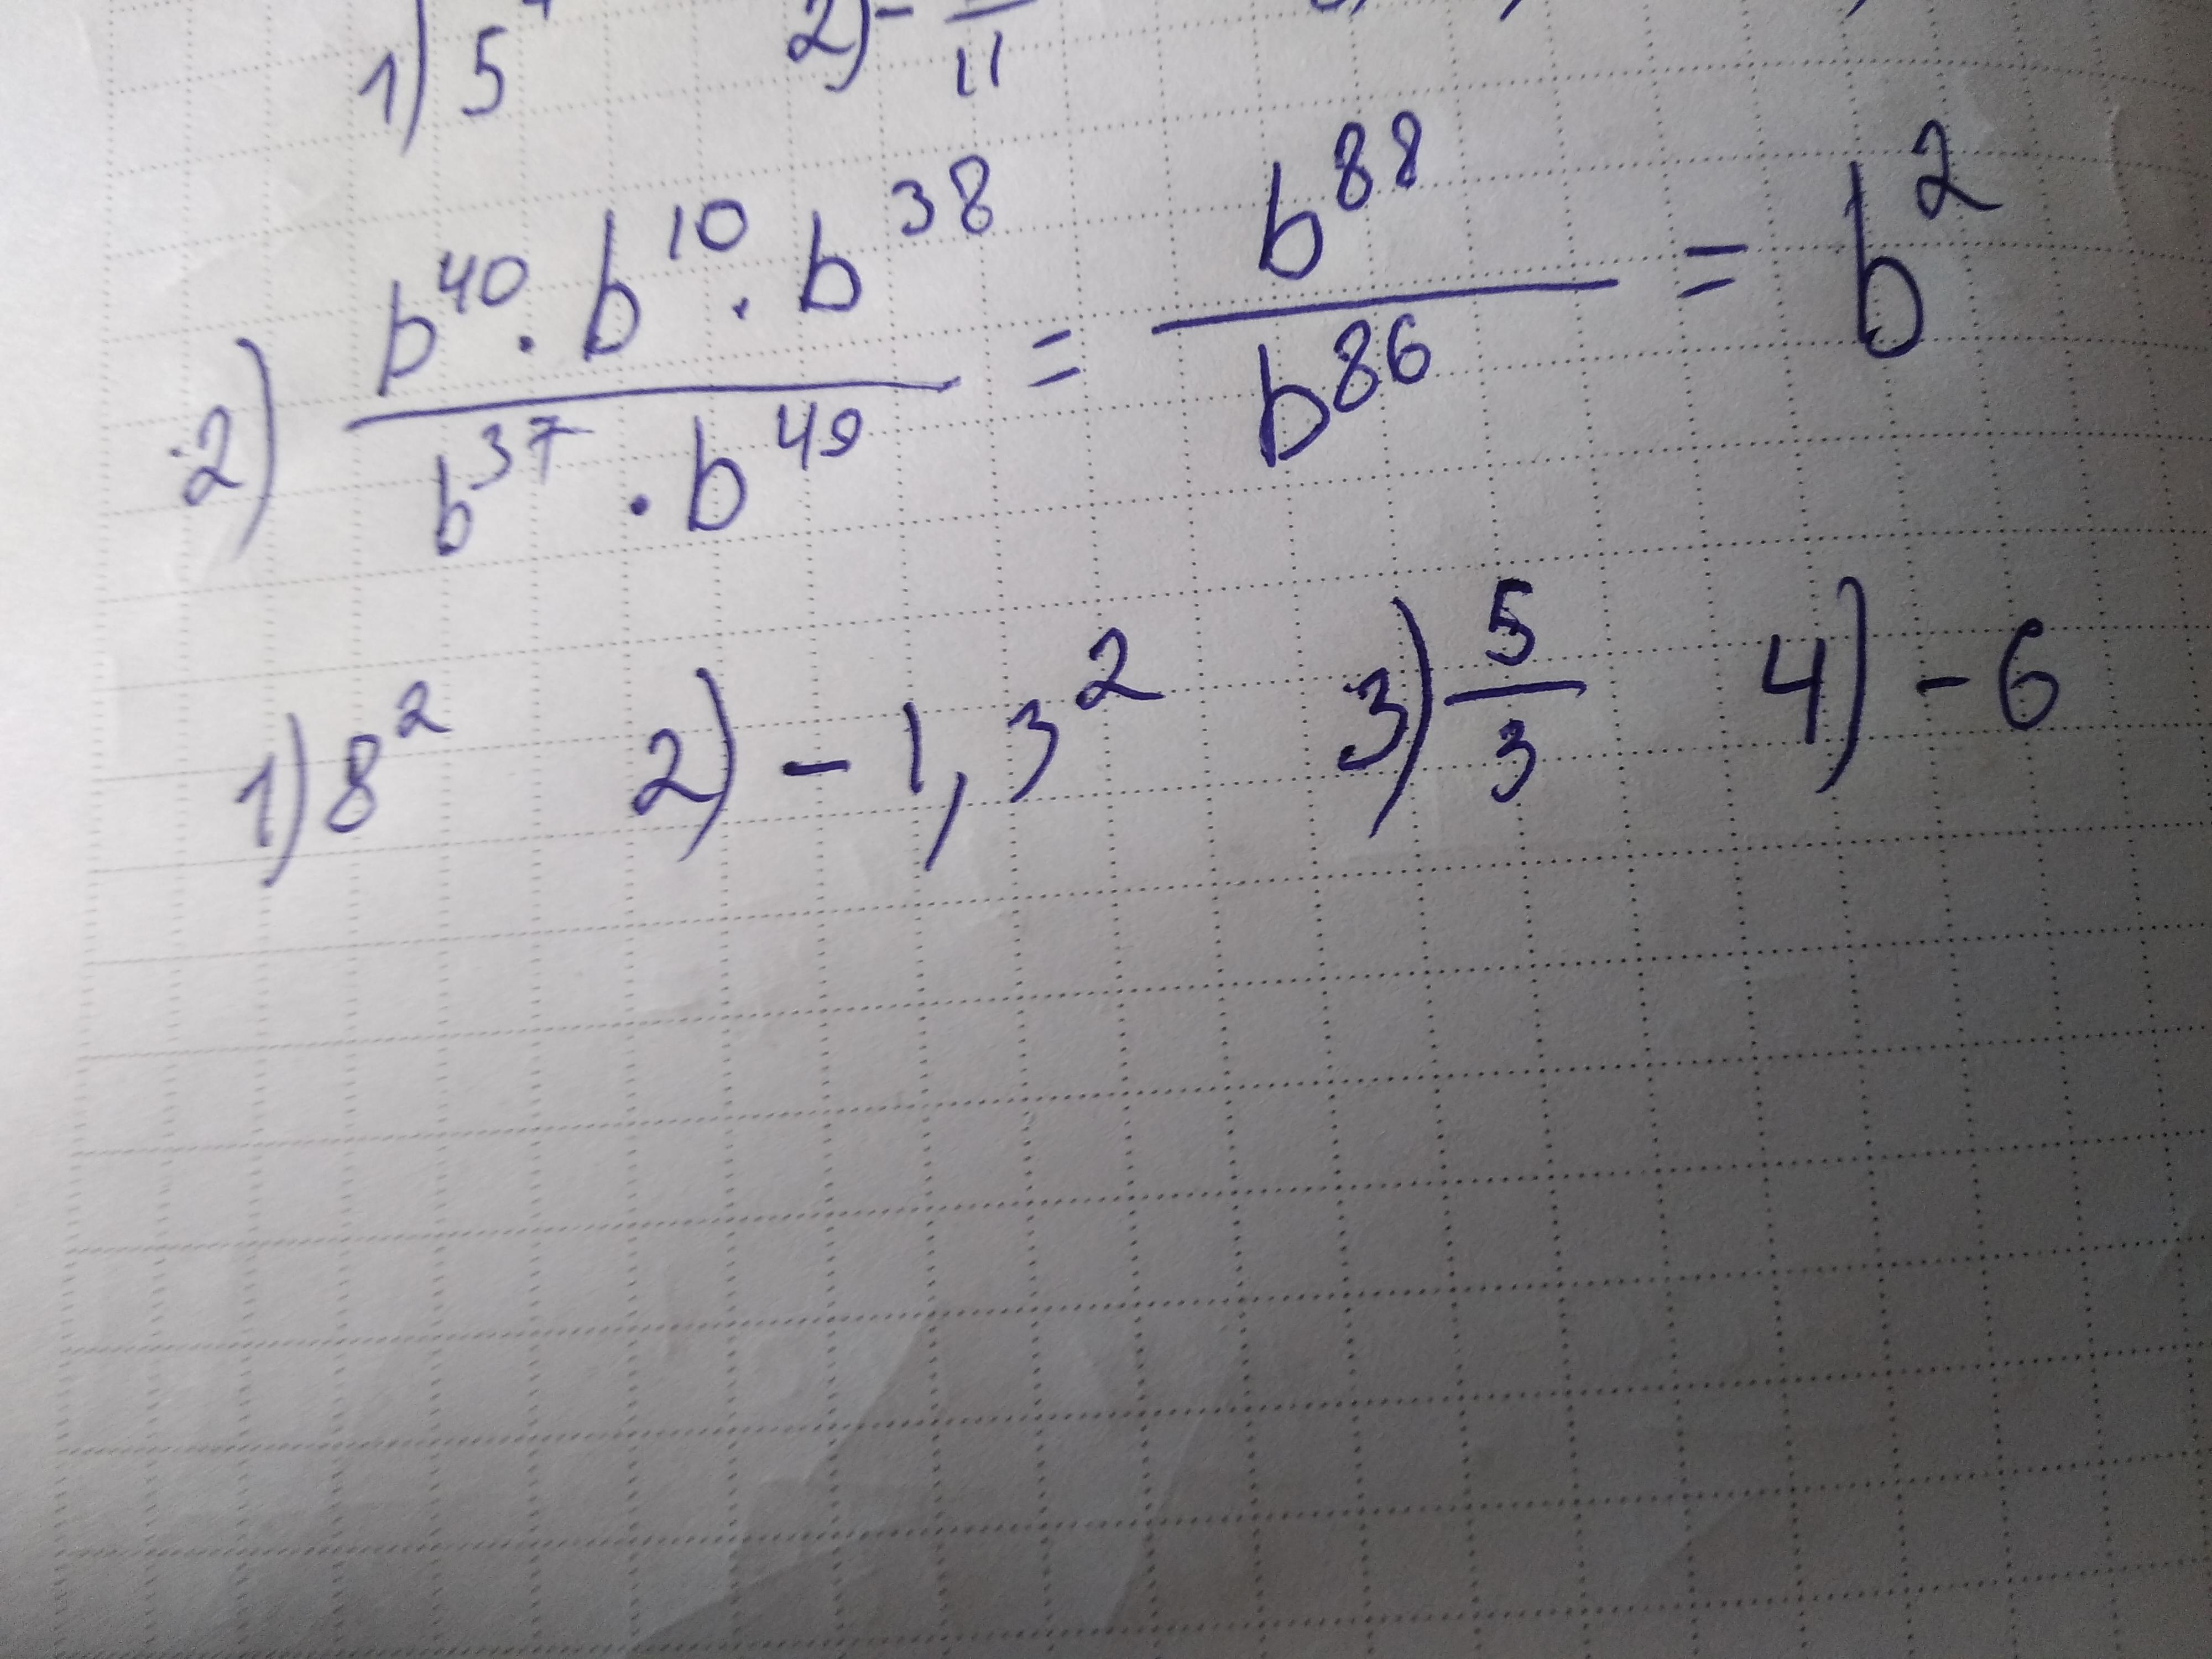 1) 5 2) - 11
2) b^40 · b^10 · b^38 / b^37 · b^49 = b^88 / b^86 = b^2
1) 8^2 2) - 1,3^2 3) 5/3 4) - 6